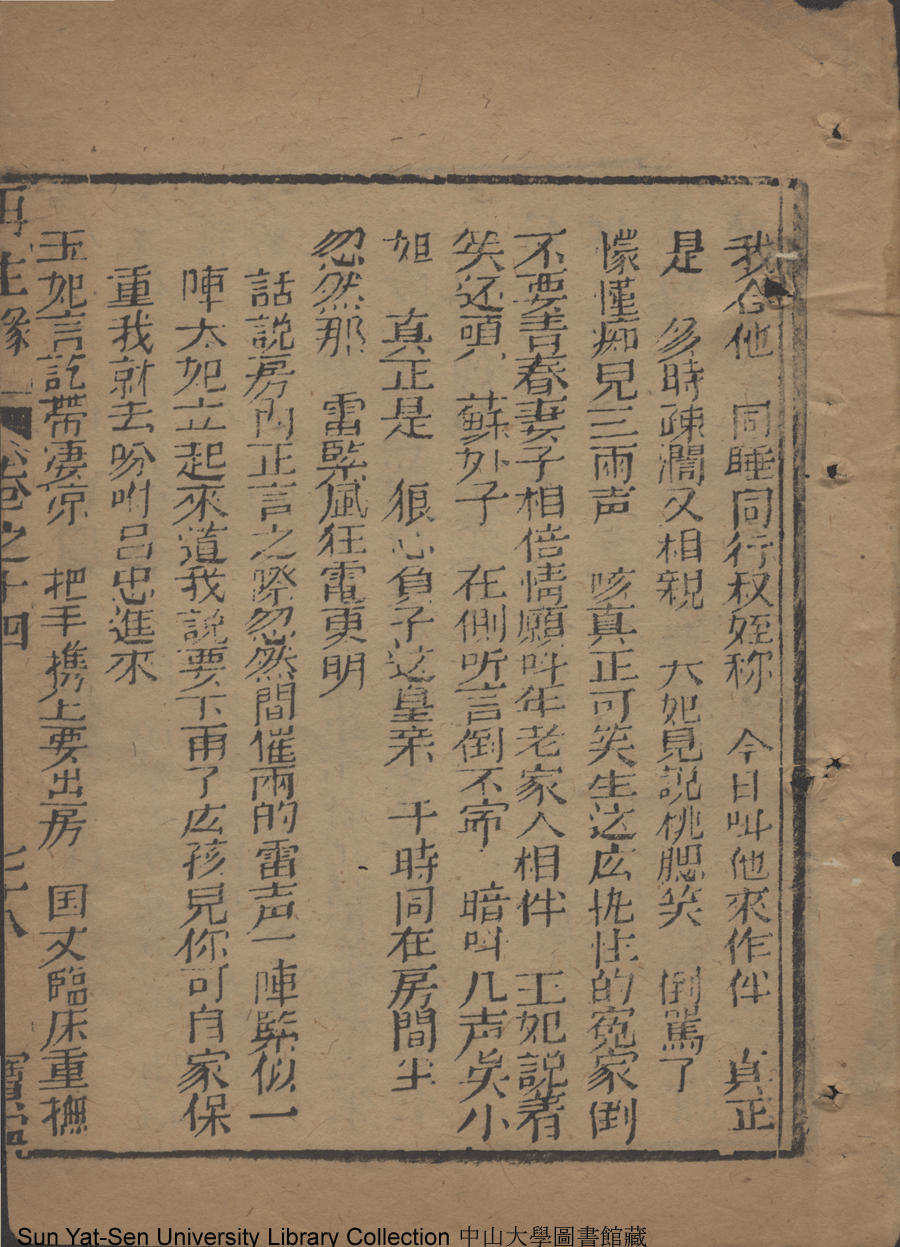 我合他　同睡同行叔姪称　今日叫他來作伴　真正
是　多時疎濶又相親　大妃見說桃腮笑　倒罵了
懞懂痴兒三兩声　咳真正可笑生这庅执性的寃家倒
不要青春妻子相倍情願叫年老家人相伴　王妃說着
笑还頭　蘇外子　在側听言倒不寧　暗叫几声吳小
姐　真正是　狠心負子这皇亲　于時同在房間坐
忽然那　雷緊風狂電更明
話說房内正言之際忽然間催雨的雷声一陣緊似一
陣太妃立起來道我說要下雨了庅孩兒你可自家保
重我就去吩咐吕忠進來
王妃言訖帶凄凉　把手携上要出房　国丈臨床重撫
再生緣　卷之十四　七十八　寳寧
Sun Yat-Sen University Library Collection 中山大學圖書館藏